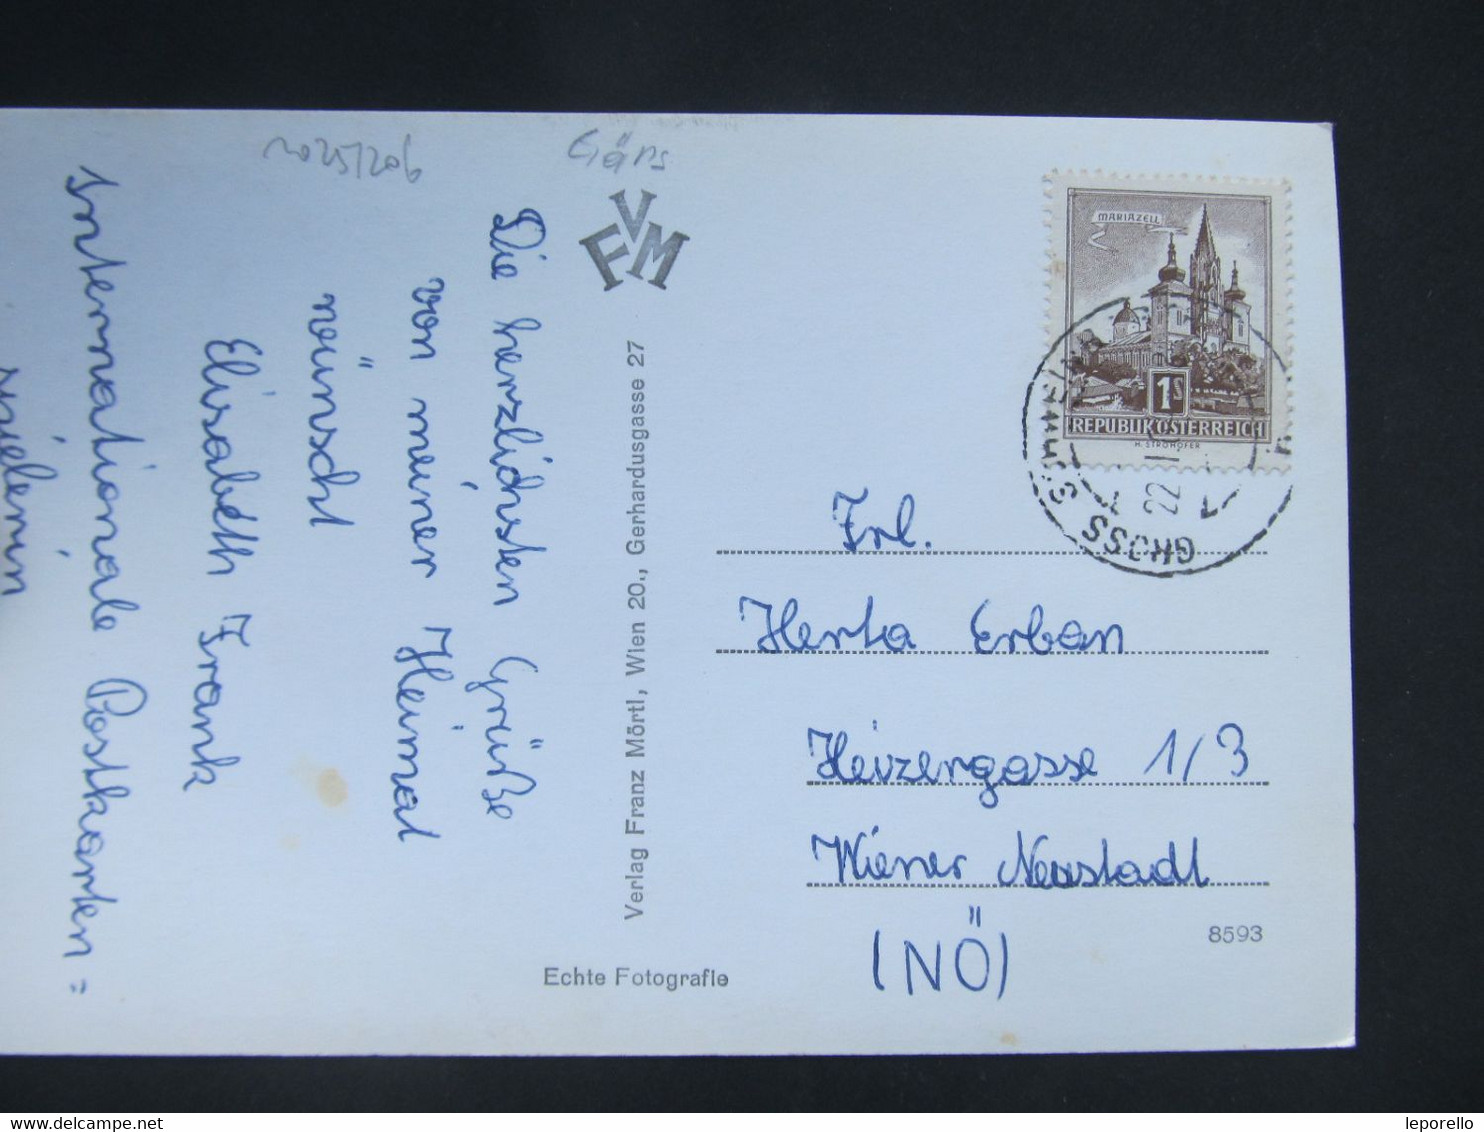 Gärs
VFM
Die herzlichsten Grüße
von meiner Heimat
wünscht
Elisabeth Frank
Internationale Postkarten=
Verlag Franz Mörtl, Wien 20., Gerhardusgasse 27
Echte Fotografie
MARIAZELL
1S
REPUBLIK ÖSTERREICH
H. STROHOFER
GROSS
22
Frl.
Herta Erban
Heizergasse 1/3
Wiener Neustadt
(NÖ)
8593
leporello